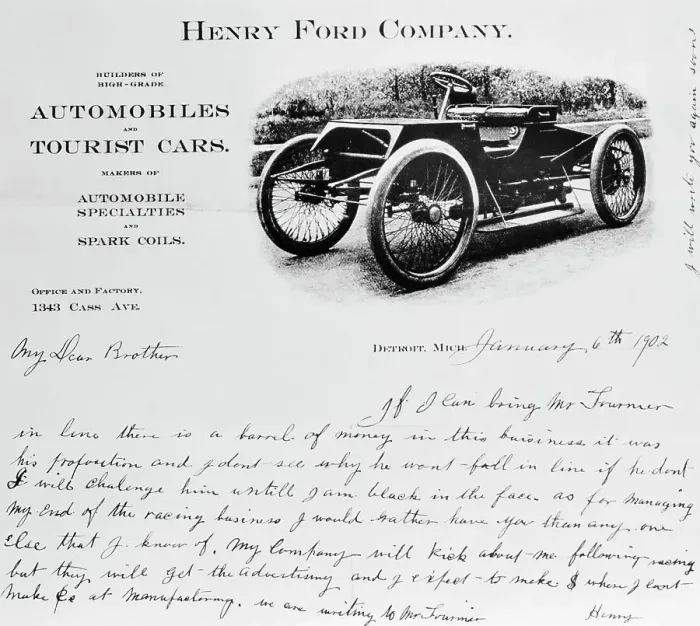 HENRY FORD COMPANY.
BUILDERS OF
HIGH-GRADE
AUTOMOBILES
AND
TOURIST CARS.
MAKERS OF
AUTOMOBILE
SPECIALTIES
AND
SPARK COILS.
OFFICE AND FACTORY,
1343 CASS AVE.
DETROIT, MICH. January 6th 1902
My Dear Brother
If I Can bring Mr Fournier
in line there is a barrel of money in this buisiness it was
his proposition and I dont see why he wont fall in line if he dont
I will challenge him untill I am black in the face. as for managing
my end of the racing business I would rather have you than any one
else that I know of. My Company will Kick about me following racing
but they will get the Advertising and I expect to make $ where I cant
make ¢s at Manufacturing. we are writing to Mr Fournier
Henry
I will write you again soon